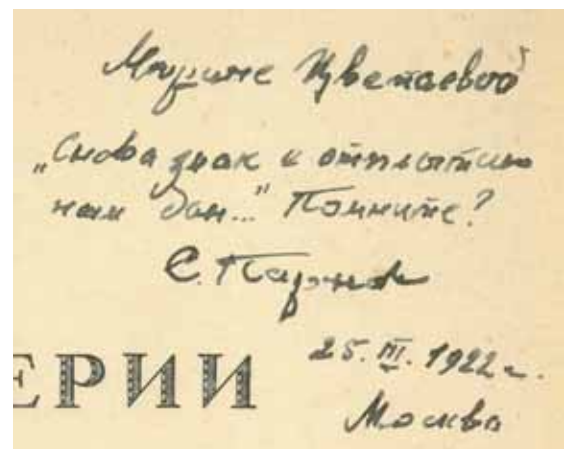 Марине Цветаевой
„Снова знак к отплытию
нам дан..." Помните?
С. Парнок
ЕРИИ
25. III. 1922 г.
Москва